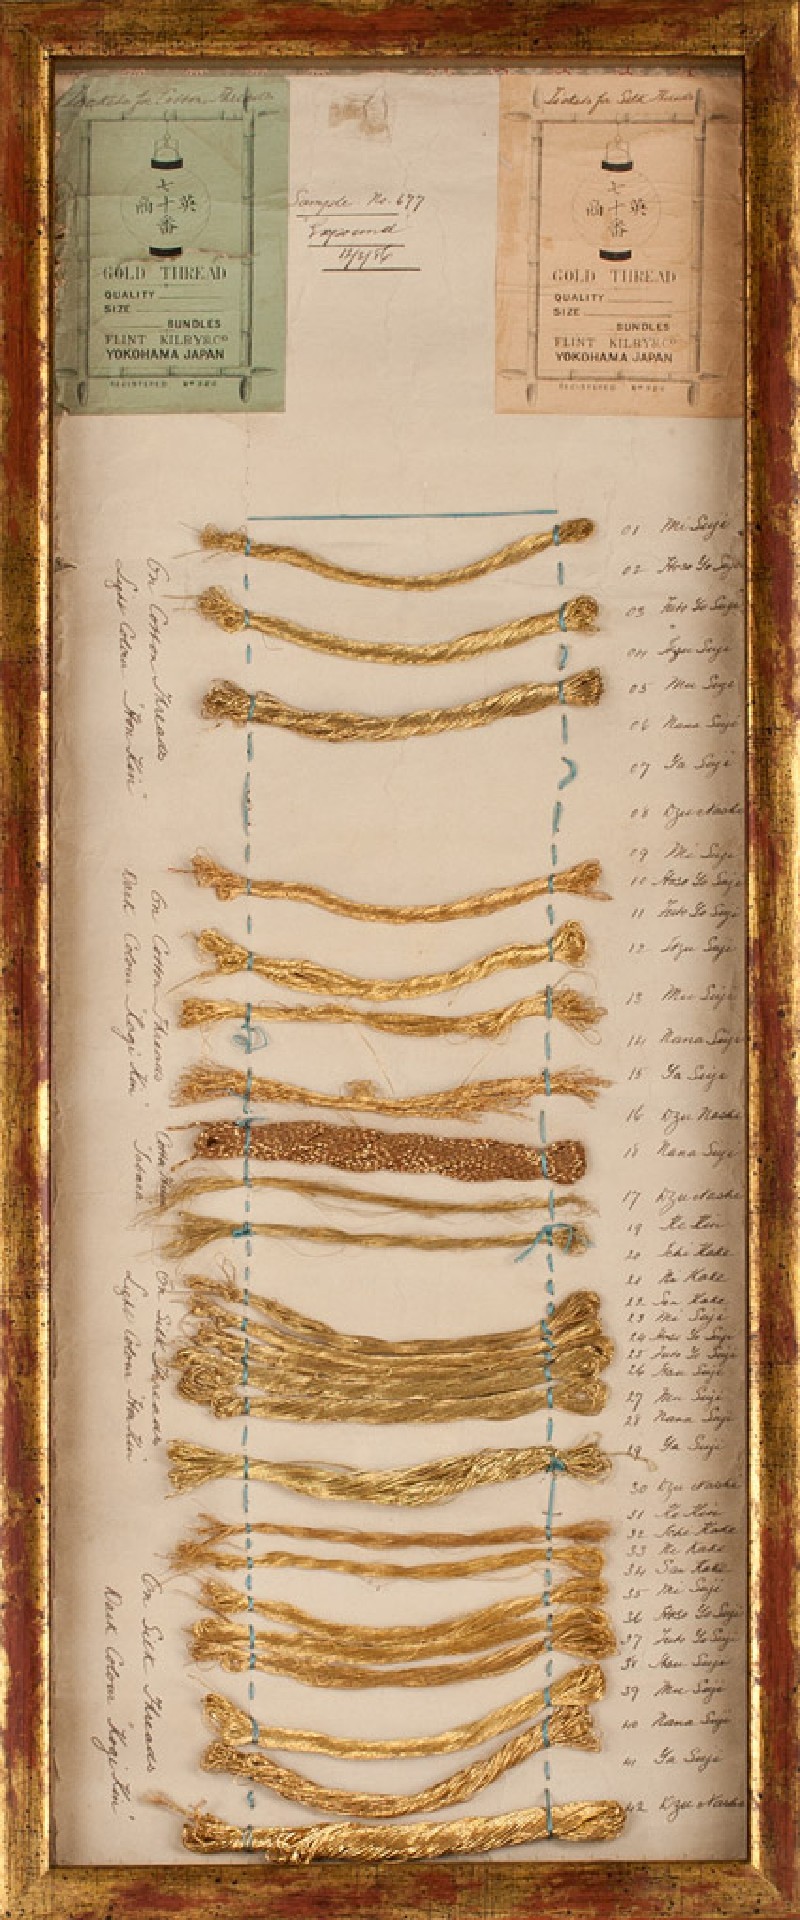 Tickets for Cotton Threads
七
商十英
番
GOLD THREAD
QUALITY
SIZE
BUNDLES
FLINT KILBY & Co
YOKOHAMA JAPAN
REGISTERED No 320
Sample No. 677
12/2/96
Tickets for Silk Threads
七
商十英
番
GOLD THREAD
QUALITY
SIZE
BUNDLES
FLINT KILBY & Co
YOKOHAMA JAPAN
REGISTERED No 320
On Cotton Threads
Light Colour "Hon Kin"
On Cotton Threads
Dark Colour "Kogi Kin"
On Silk Threads
Light Colour "Hon Kin"
On Silk Threads
Dark Colour "Kogi Kin"
01 Mi Suji
02 Hoso Yo Suji
03 Futo Yo Suji
04 Suji
05 Mu Suji
06 Nana Suji
07 Ya Suji
08 Dzu Nashi
09 Mi Suji
10 Hoso Yo Suji
11 Futo Yo Suji
12 Suji
13 Mu Suji
14 Nana Suji
15 Ya Suji
16 Dzu Nashi
18 Nana Suji
17 Dzu Nashi
19 Ke Kin
20 Ichi Kake
21 Ni Kake
22 San Kake
23 Mi Suji
24 Hoso Yo Suji
25 Futo Yo Suji
26 Suji
27 Mu Suji
28 Nana Suji
29 Ya Suji
30 Dzu Nashi
31 Ke Kin
32 Ichi Kake
33 Ni Kake
34 San Kake
35 Mi Suji
36 Hoso Yo Suji
37 Futo Yo Suji
38 Suji
39 Mu Suji
40 Nana Suji
41 Ya Suji
42 Dzu Nashi